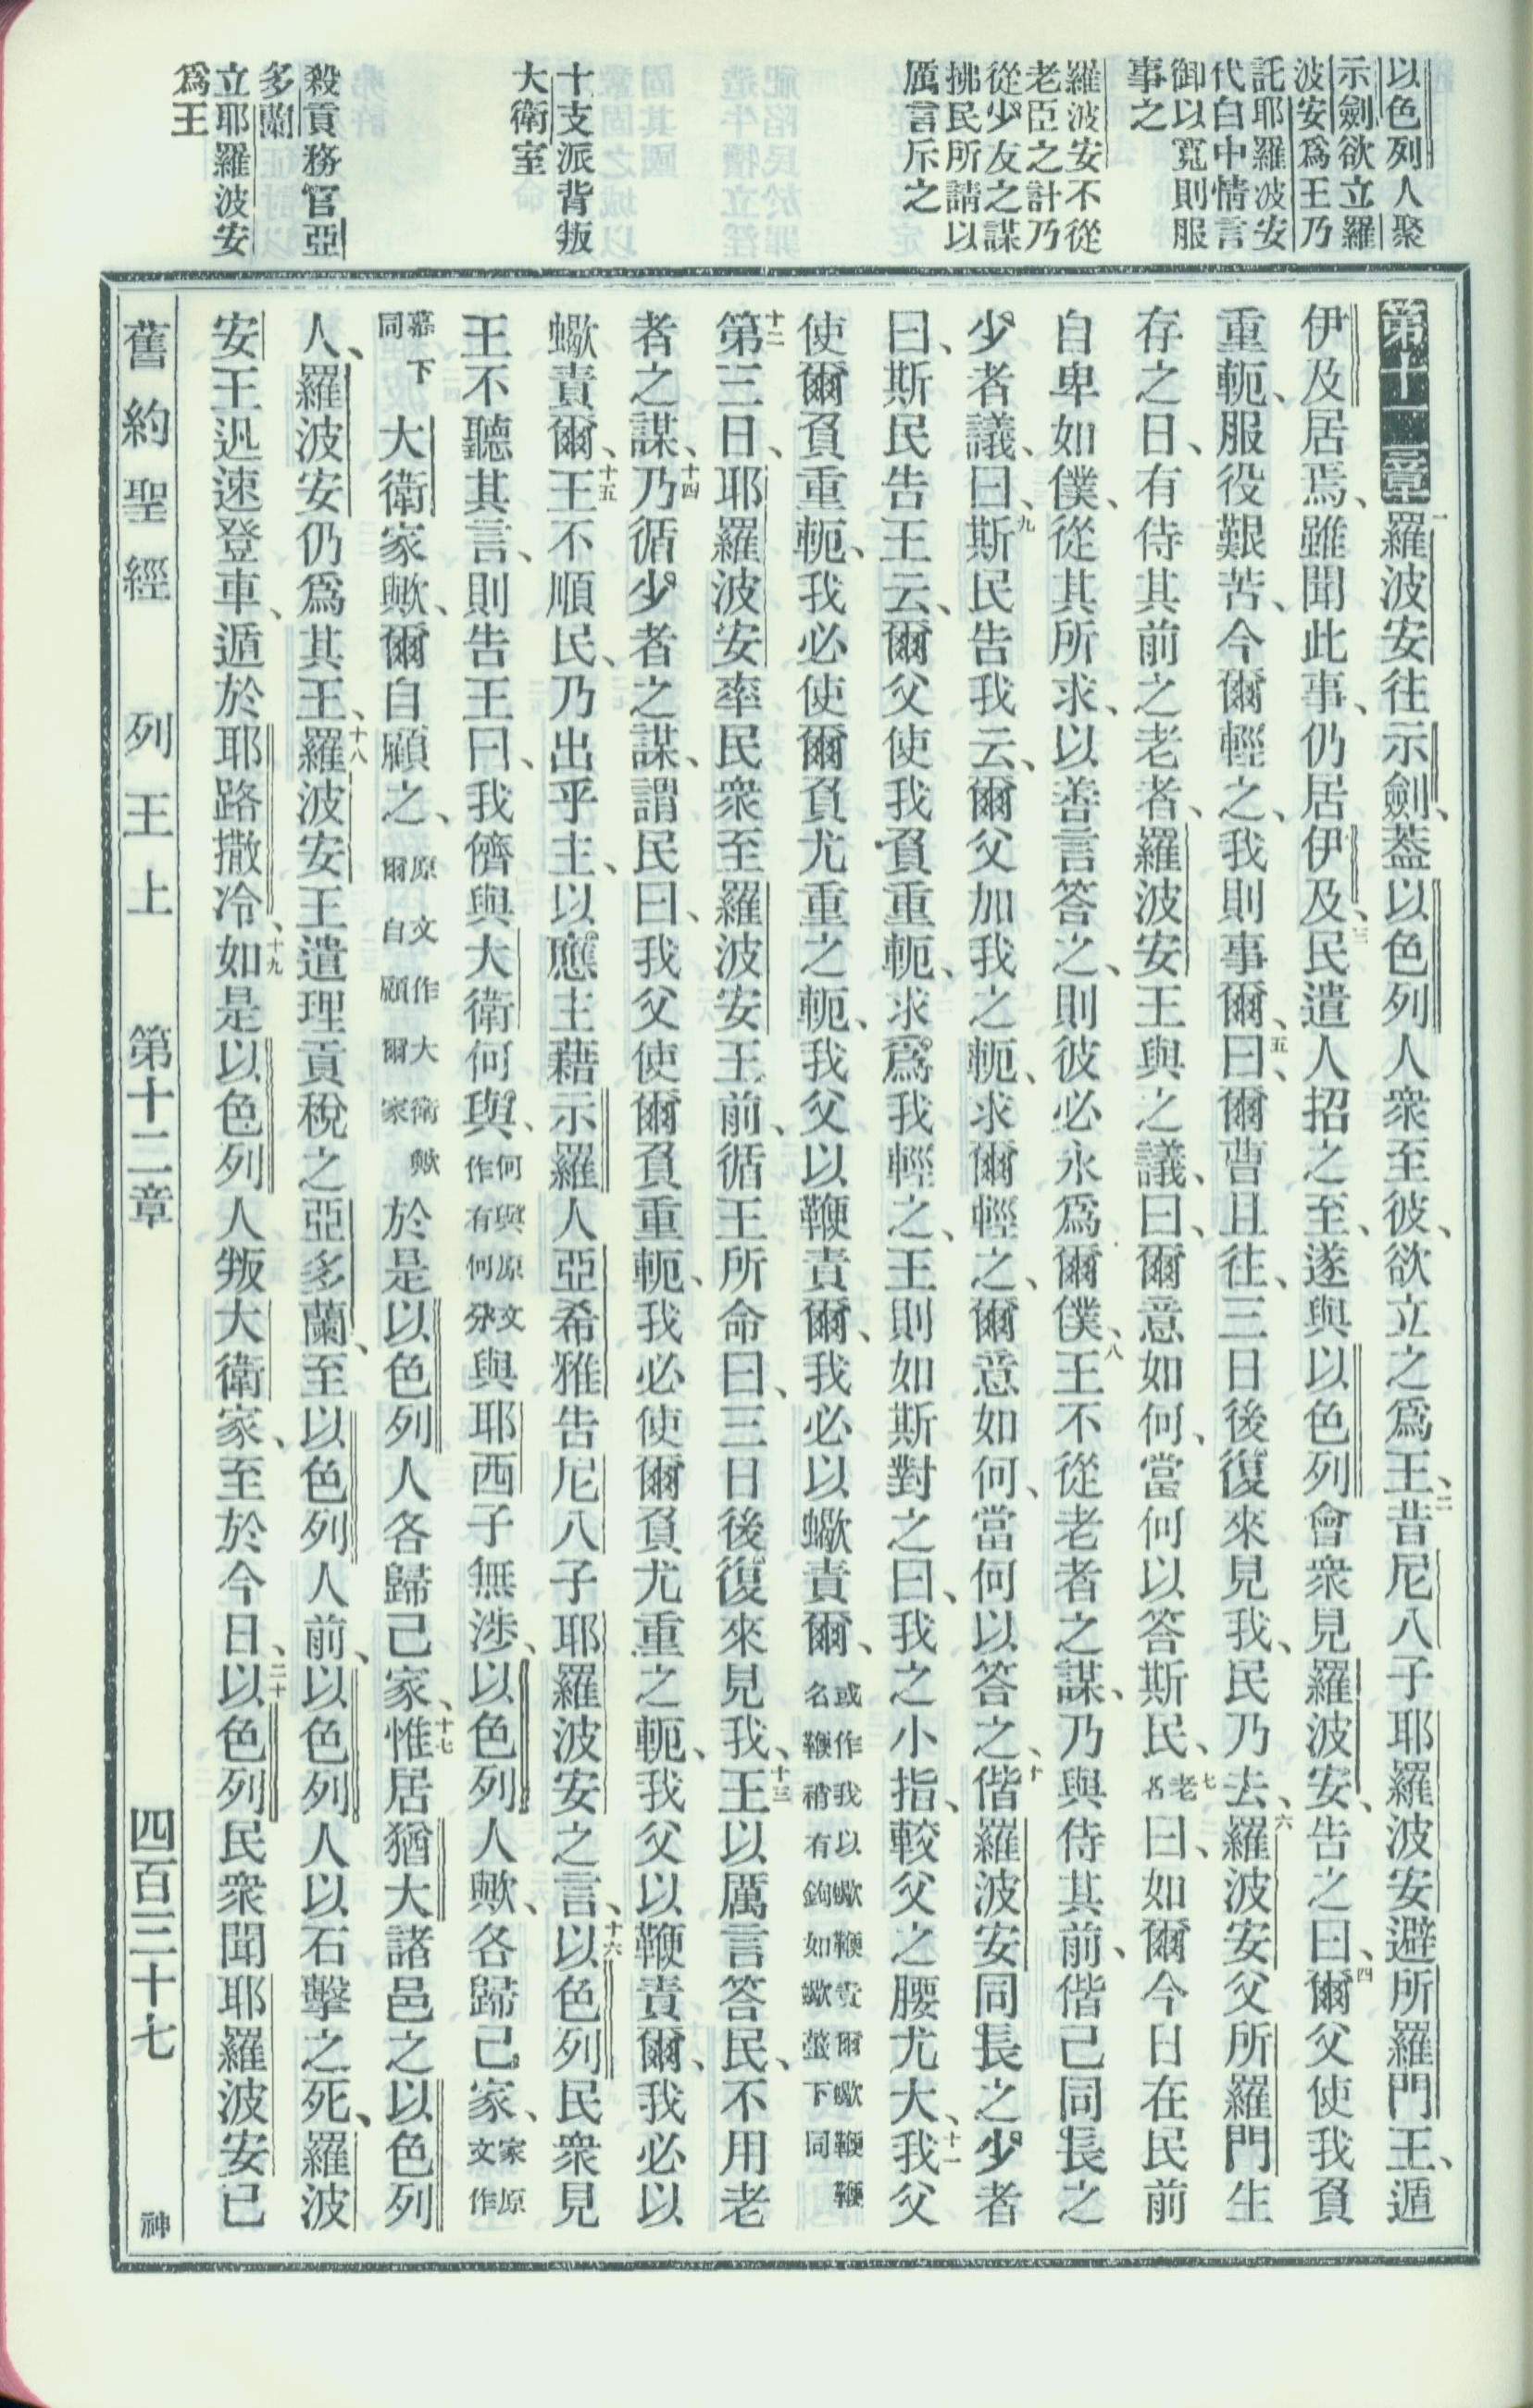 以色列人聚
示劍欲立羅
波安爲王乃
託耶羅波安
代白中情言
御以寬則服
事之
羅波安不從
老臣之計乃
從少友之謀
拂民所請以
厲言斥之
十支派背叛
大衛室
殺貢務官亞
多蘭
立耶羅波安
爲王
第十二章一羅波安往示劍、蓋以色列人衆至彼、欲立之爲王、二昔尼八子耶羅波安避所羅門王、遁
伊及居焉、雖聞此事、仍居伊及、三民遣人招之至、遂與以色列會衆見羅波安、告之曰、四爾父使我負
重軛、服役艱苦、今爾輕之、我則事爾、五曰、爾曹且往、三日後復來見我、民乃去、六羅波安父所羅門生
存之日、有侍其前之老者、羅波安王與之議、曰、爾意如何、當何以答斯民、七老者曰、如爾今日在民前
自卑如僕、從其所求、以善言答之、則彼必永爲爾僕、八王不從老者之謀、乃與侍其前、偕己同長之
少者議、九曰、斯民告我云、爾父加我之軛、求爾輕之、爾意如何、當何以答之、十偕羅波安同長之少者
曰、斯民告王云、爾父使我負重軛、求爲我輕之、王則如斯對之曰、我之小指、較父之腰尤大、十一我父
使爾負重軛、我必使爾負尤重之軛、我父以鞭責爾、我必以蠍責爾、或作我以蠍鞭責爾蠍鞭鞭名鞭稍有鉤如蠍螫下同
十二第三日、耶羅波安率民衆至羅波安王前、循王所命曰、三日後復來見我、十三王以厲言答民、不用老
者之謀、十四乃循少者之謀、謂民曰、我父使爾負重軛、我必使爾負尤重之軛、我父以鞭責爾、我必以
蠍責爾、十五王不順民、乃出乎主、以應主藉示羅人亞希雅告尼八子耶羅波安之言、十六以色列民衆見
王不聽其言、則告王曰、我儕與大衛何與、何與原文作有何分與耶西子無涉、以色列人歟、各歸己家、家原文作
幕下同大衛家歟、爾自顧之、原文作大衛歟爾自顧爾家於是以色列人各歸己家、十七惟居猶大諸邑之以色列
人、羅波安仍爲其王、十八羅波安王遣理貢稅之亞多蘭、至以色列人前、以色列人以石擊之死、羅波
安王迅速登車、遁於耶路撒冷、十九如是以色列人叛大衛家、至於今日、二十以色列民衆聞耶羅波安已
舊約聖經　列王上　第十二章　四百三十七　神